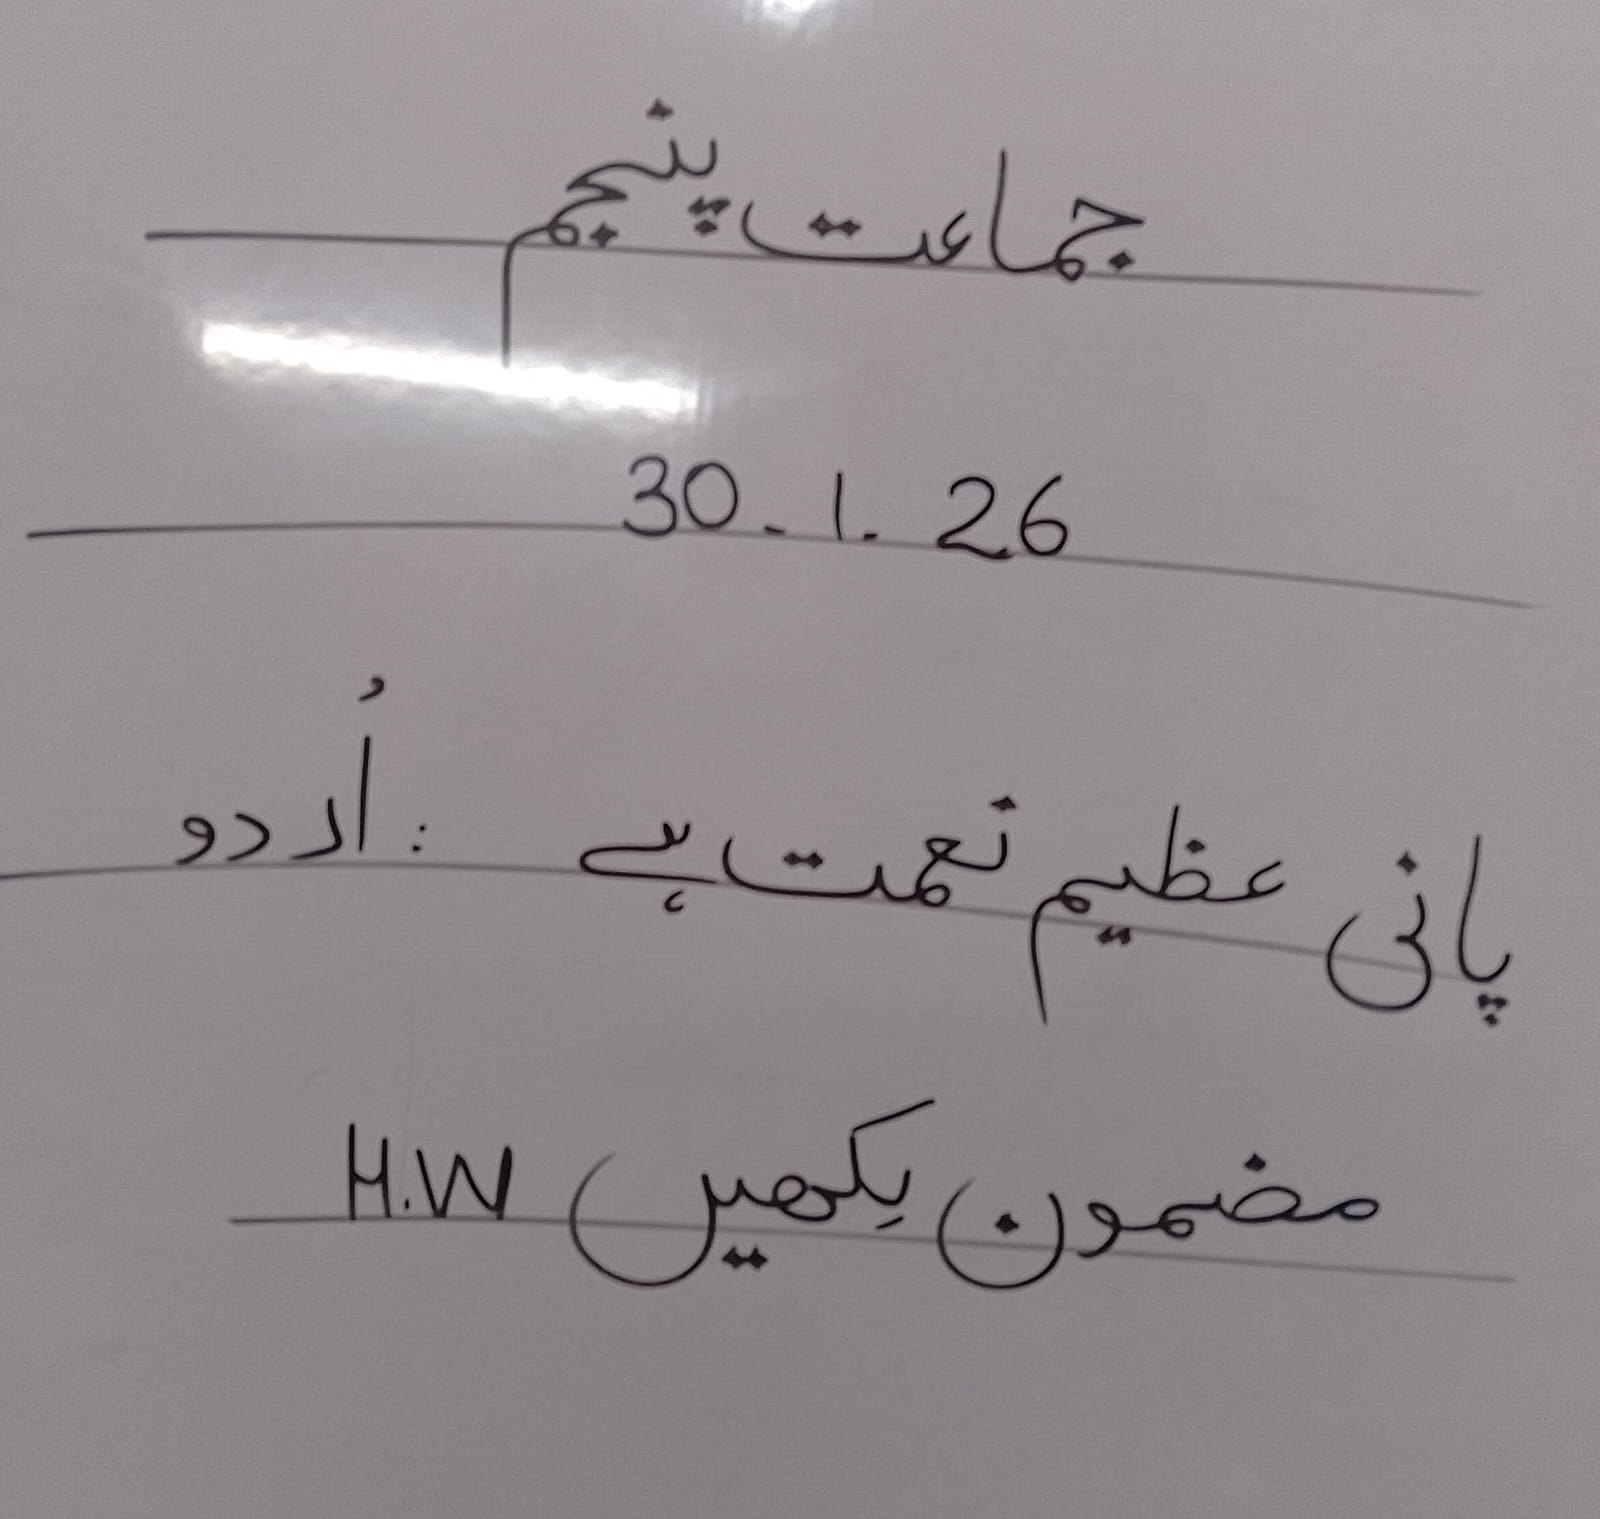 جماعت پنجم
30.1.26
اُردو : پانی عظیم نعمت ہے
H.W مضمون لکھیں